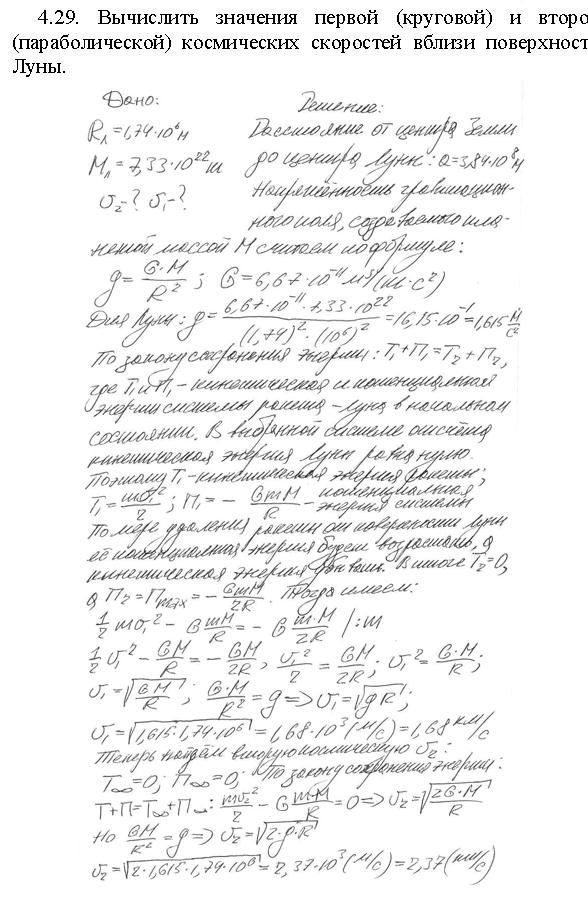 4.29. Вычислить значения первой (круговой) и второ
(параболической) космических скоростей вблизи поверхност
Луны.
Дано: Решение:
Rл = 1,74·10⁶м Расстояние от центра Земли
Mл = 7,33·10²² кг до центра Луны: a=3,84·10⁸м
υ₂-? υ₁-? Напряжённость гравитацион-
ного поля, создаваемого пла-
нетой массой M считаем по формуле:
g = G·M/R²; G = 6,67·10⁻¹¹ м³/(кг·с²)
Для Луны: g = 6,67·10⁻¹¹·7,33·10²²/(1,74)²·(10⁶)² = 16,15·10⁻¹ = 1,615 м/с²
По закону сохранения энергии: T₁+П₁=T₂+П₂,
где T₁ и П₁ - кинетическая и потенциальная
энергии системы ракета - Луна в начальном
состоянии. В выбранной системе отсчёта
кинетическая энергия Луны равна нулю.
Поэтому T₁ - кинетическая энергия ракеты;
T₁ = mυ₁²/2; П₁ = - GmM/R - потенциальная энергия системы
По мере удаления ракеты от поверхности Луны
её потенциальная энергия будет возрастать, а
кинетическая энергия убывать. В итоге T₂=0,
а П₂ = Пmax = - GmM/2R. Тогда имеем:
1/2 mυ₁² - G mM/R = - G m·M/2R |:m
1/2 υ₁² - GM/R = - GM/2R, υ₁²/2 = GM/2R; υ₁² = G·M/R;
υ₁ = √(GM/R); G·M/R² = g => υ₁ = √(gR);
υ₁ = √(1,615·1,74·10⁶) = 1,68·10³ (м/с) = 1,68 км/с
Теперь найдём вторую космическую υ₂:
T∞=0; П∞=0; По закону сохранения энергии:
T+П=T∞+П∞: mυ₂²/2 - G m·M/R = 0 => υ₂ = √(2G·M/R)
Но GM/R² = g => υ₂ = √(2·g·R)
υ₂ = √(2·1,615·1,74·10⁶) = 2,37·10³ (м/с) = 2,37 (км/с)